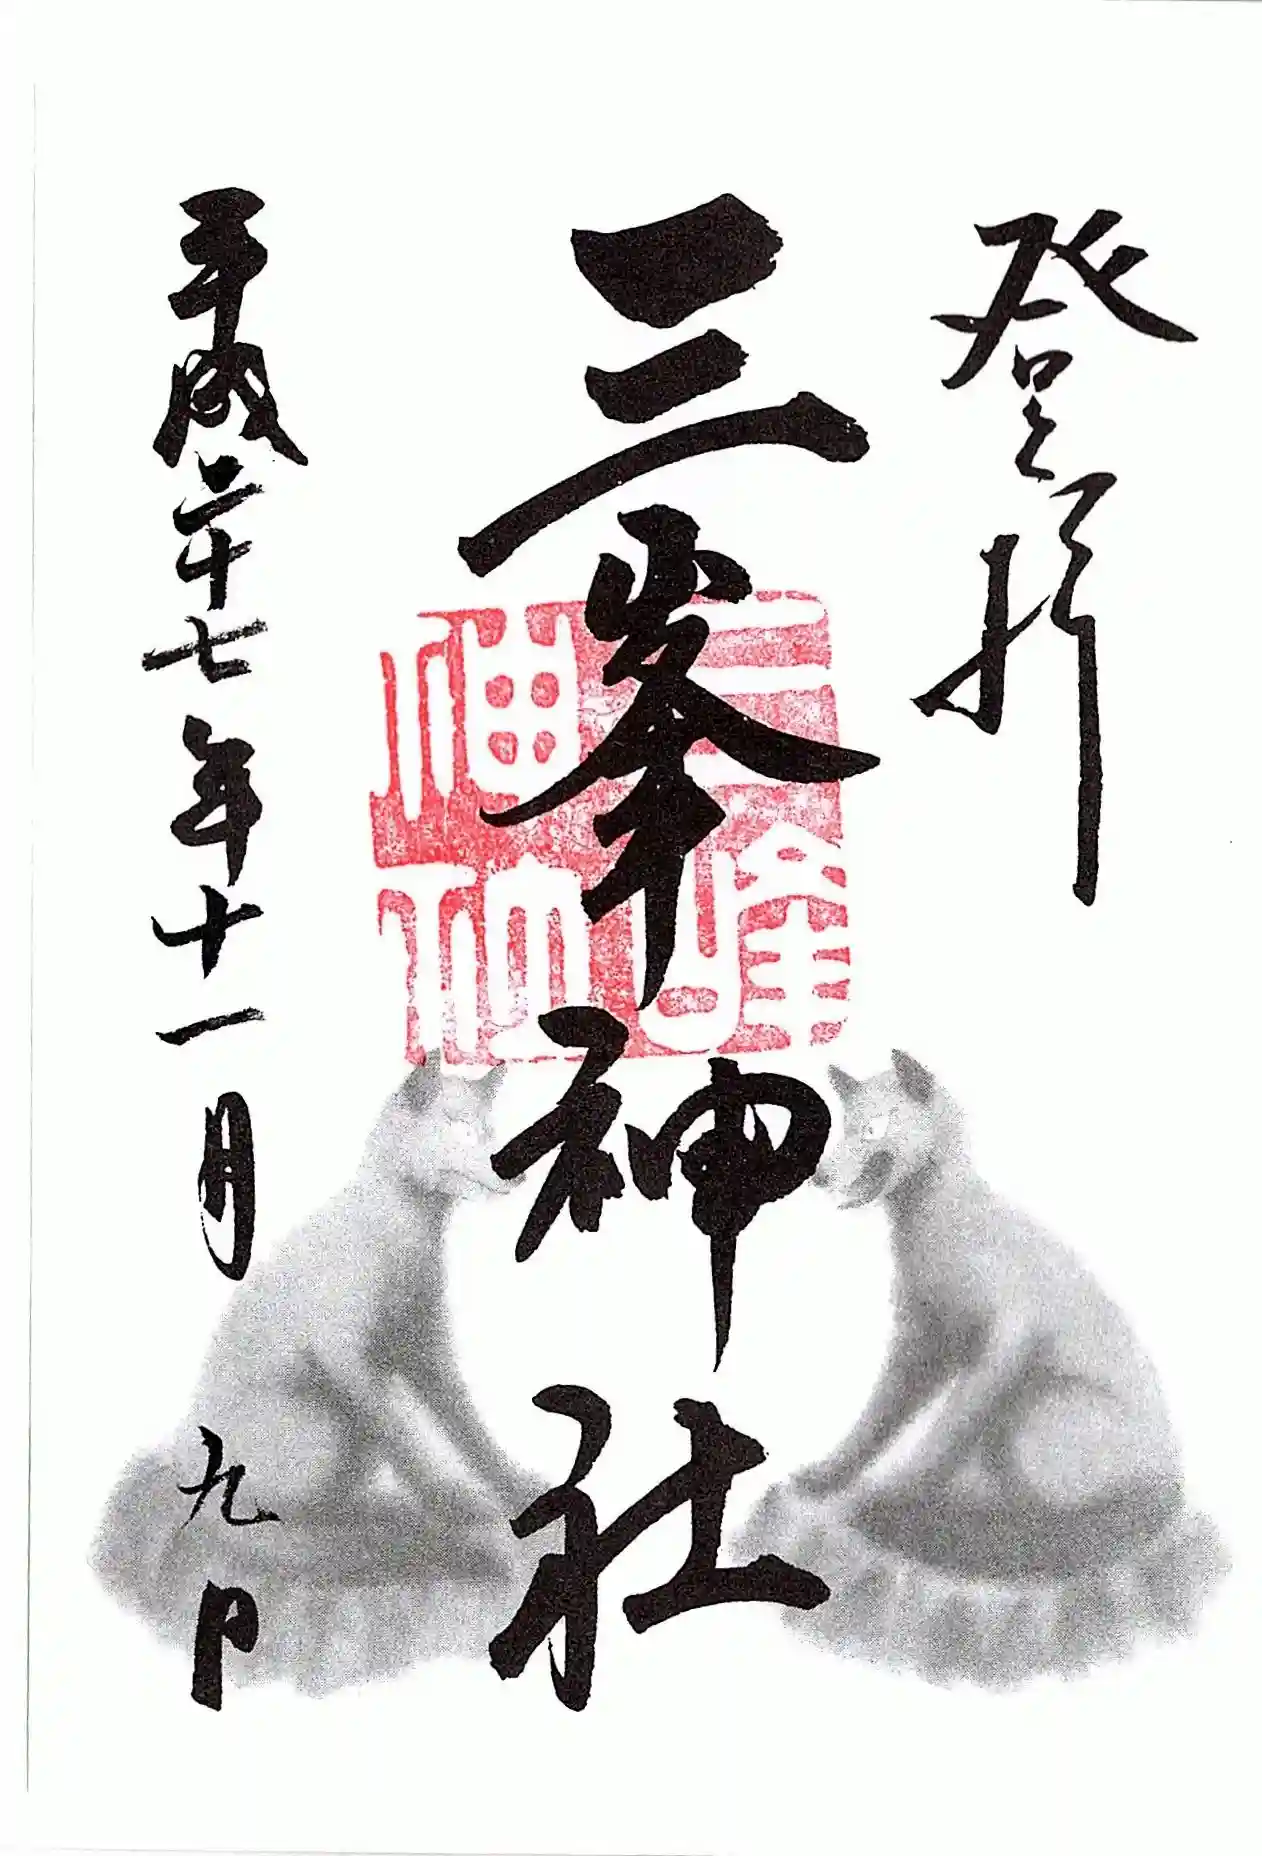 登拝
三峯神社
三峰神社
平成二十七年十一月九日